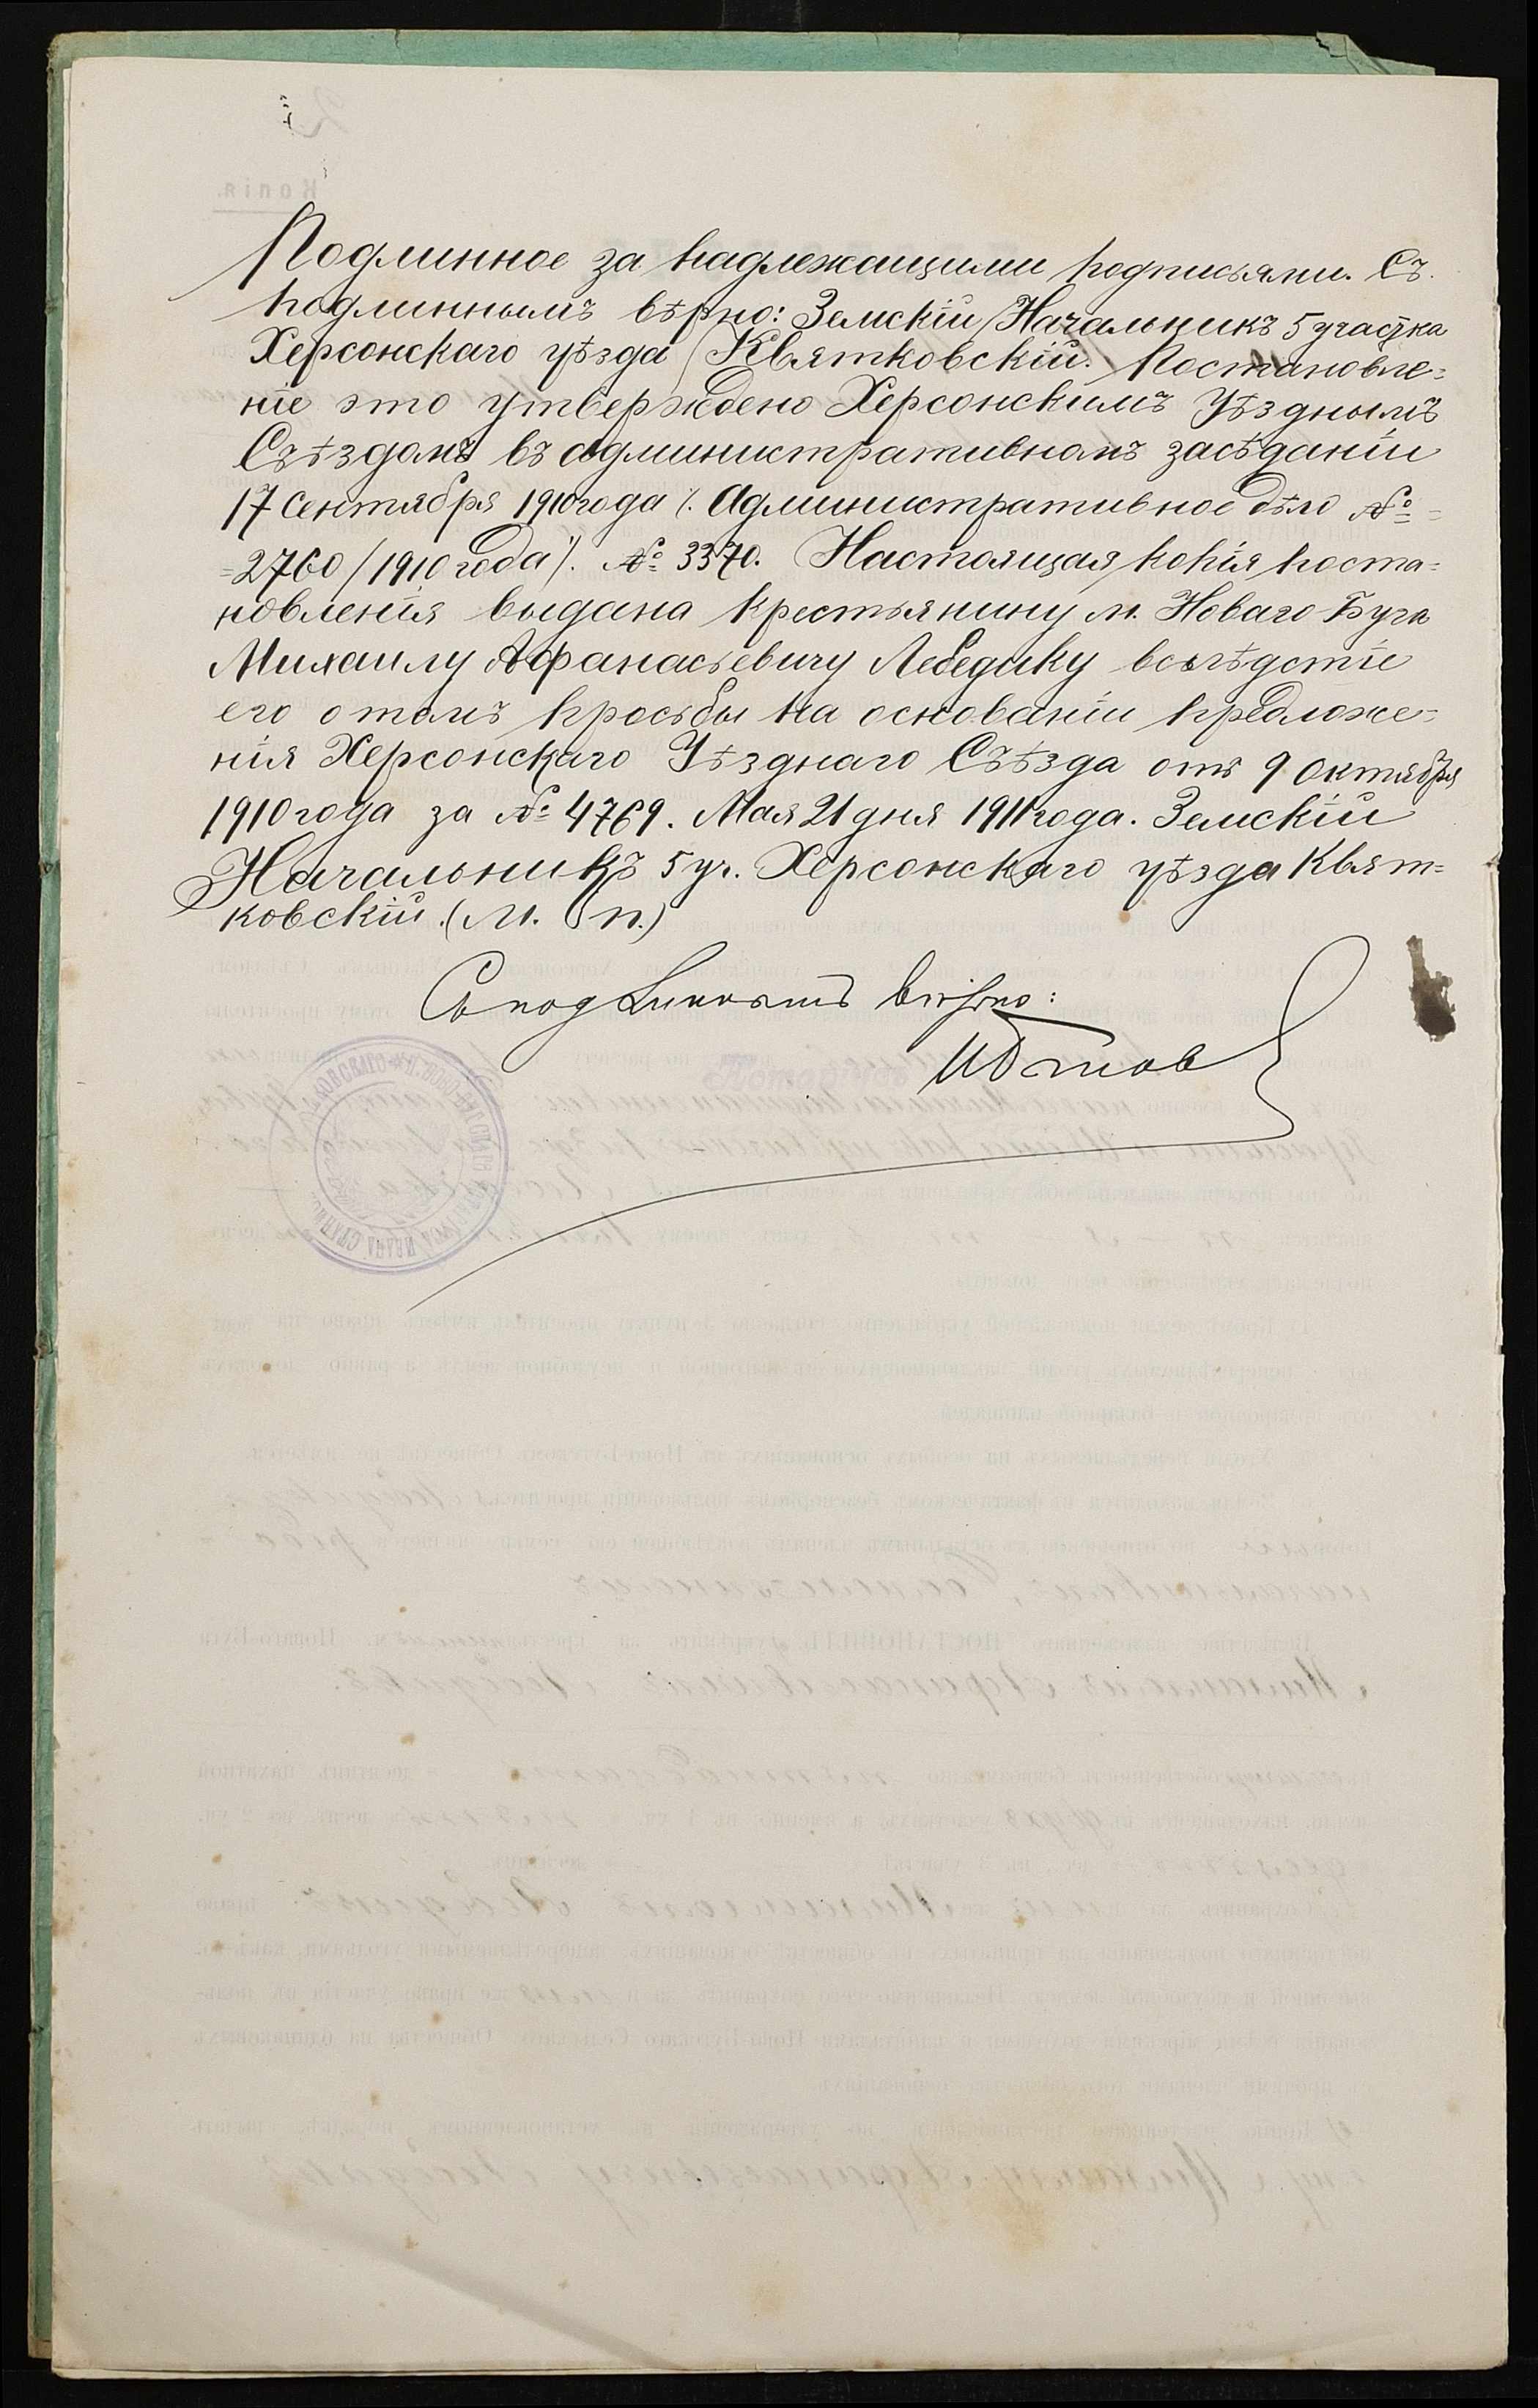 Подлинное за надлежащими подписями. Съ
подлиннымъ вѣрно: Земскій Начальникъ 5 участка
Херсонскаго уѣзда Квятковскій. Постановле=
ніе это утверждено Херсонскимъ Уѣзднымъ
Съѣздомъ въ административномъ засѣданіи
17 Сентября 1910 года /. Административное дѣло №=
=2760/1910 года /. № 3370. Настоящая копія поста=
новленія выдана крестьянину м. Новаго-Буга
Михаилу Афанасьевичу Лебедику вслѣдстіе
его о томъ просьбы на основаніи предложе=
нія Херсонскаго Уѣзднаго Съѣзда отъ 9 Октября
1910 года за № 4769. Мая 21 дня 1911 года. Земскій
Начальникъ 5 уч. Херсонскаго уѣзда Квят=
ковскій. (М. П.)
Съ подлиннымъ вѣрно: